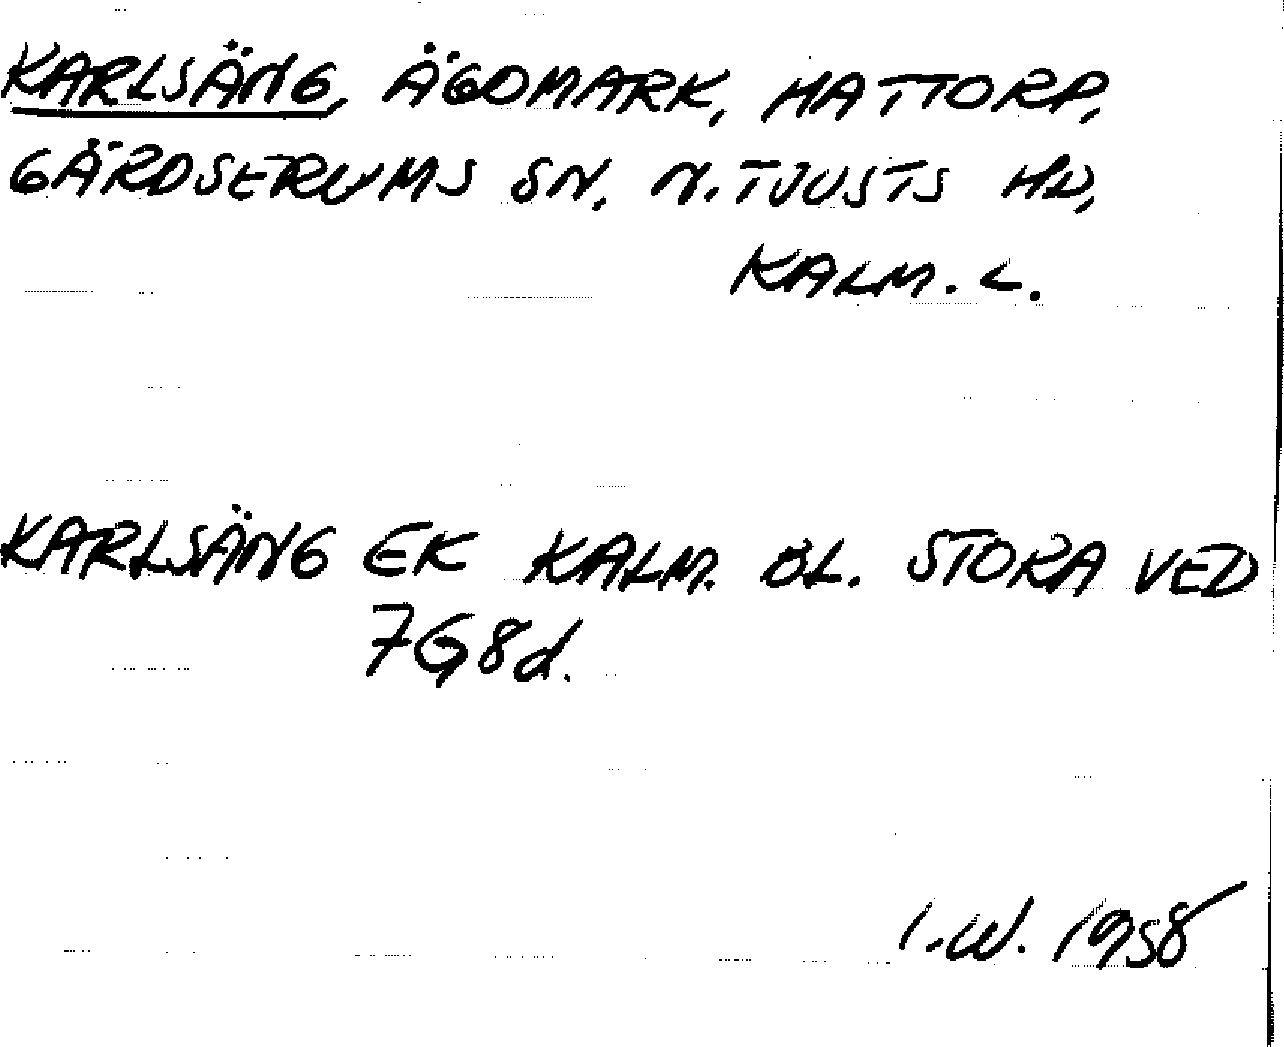 KARLSÄNG, ÄGOMARK, HATTORP,
GÄRDSERUMS SN, N. TJUSTS HD,
KALM. L.
KARLSÄNG EK KALM. BL. STORA VED
7G8d.
I.W. 1958